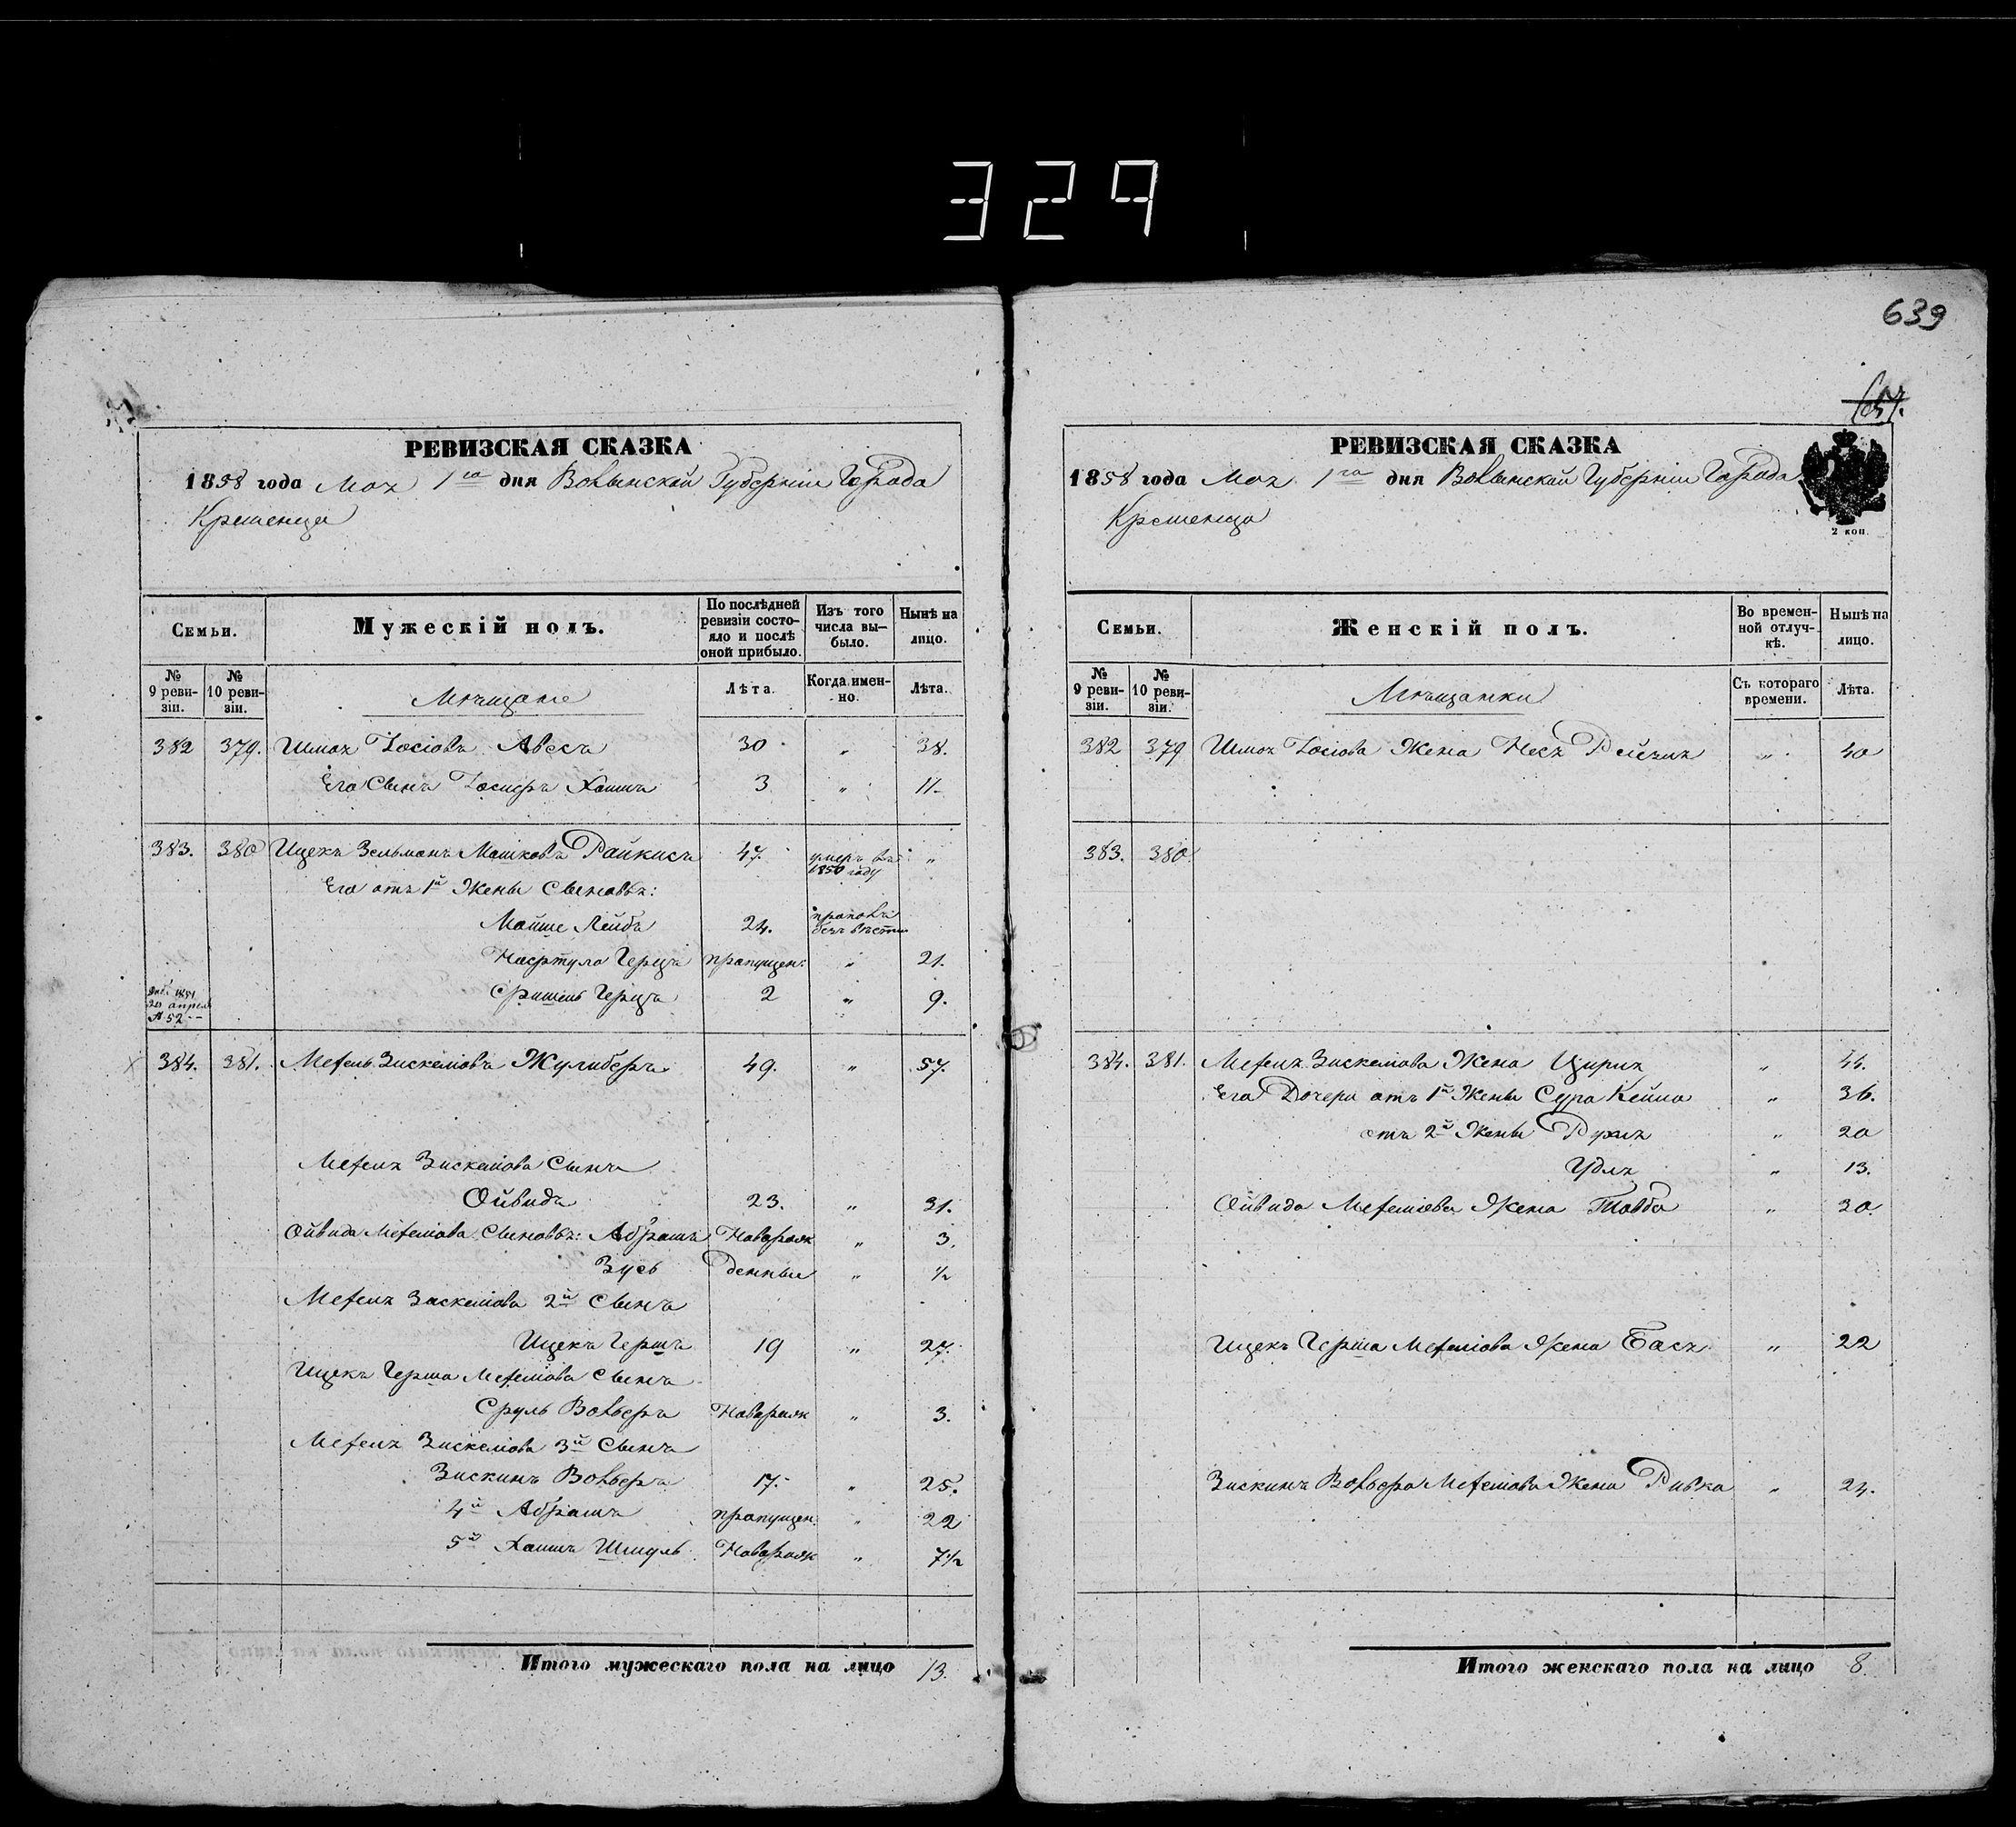 329
639
РЕВИЗСКАЯ СКАЗКА
1858 года Мая 1го дня Волынской Губерніи Города
Кременца
Семьи.
Мужескій полъ.
По послѣдней ревизіи состояло и послѣ оной прибыло.
Изъ того числа выбыло.
Нынѣ на лицо.
№ 9 ревизіи.
№ 10 ревизіи.
Мѣщане
Лѣта.
Когда именно.
Лѣта.
382 379. Шмая Іосіовъ Авесъ 30 „ 38.
Его Сынъ Іосперъ Хаимъ 3 „ 11.
383. 380 Ицекъ Зельманъ Машковъ Райкисъ 47. умеръ въ 1850 году „
Его отъ 1й Жены Сыновья:
Мойше Лейба 24. пропалъ безъ вѣсти
Нафтула Герцъ пропущен: „ 21.
Сришель Герцъ 2 „ 9.
384. 381. Мехель Зискеліовъ Жулиберъ 49. „ 57.
Мехеля Зискеліова Сынъ
Ойвидъ 23. „ 31.
Ойвида Мехеліова Сыновья: Абрамъ Новорож „ 3.
Зусь денные „ ½
Мехеля Зискеліова 2й Сынъ
Ицекъ Гершъ 19 „ 27.
Ицекъ Герша Мехеліова Сынъ
Сруль Вольберъ Новорож „ 3.
Мехеля Зискеліова 3й Сынъ
Зискинъ Вольберъ 17. „ 25.
4й Абрамъ пропущен: „ 22
5й Хаимъ Шмуль Новорож „ 7½
Итого мужескаго пола на лицо 13.
РЕВИЗСКАЯ СКАЗКА
1858 года Мая 1го дня Волынской Губерніи Города
Кременца
2 коп.
Семьи.
Женскій полъ.
Во временной отлучкѣ.
Нынѣ на лицо.
№ 9 ревизіи.
№ 10 ревизіи.
Мѣщанки
Съ котораго времени.
Лѣта.
382 379 Шмая Іосіова Жена Хая Рейзля „ 40
383. 380.
384. 381. Мехеля Зискеліова Жена Циря „ 44.
Его Дочери отъ 1й Жены Сура Кейла „ 36.
отъ 2й Жены Рухля „ 20
Удля „ 13.
Ойвида Мехеліова Жена Товба „ 30.
Ицекъ Герша Мехеліова Жена Бася „ 22
Зискинъ Вольбера Мехеліова Жена Ривка „ 24.
Итого женскаго пола на лицо 8.